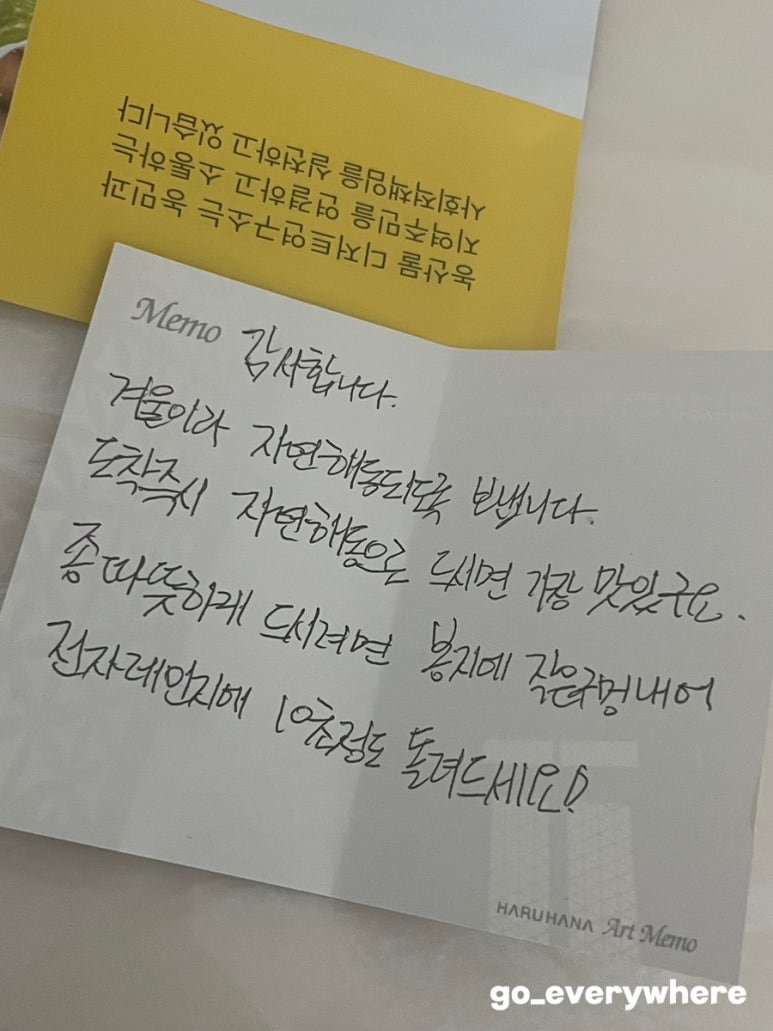 농산물 디저트연구소는 농민과
지역주민을 연결하고 소통하는
사회적책임을 실천하고 있습니다
Memo 감사합니다.
겨울이라 자연해동되도록 보냅니다.
도착즉시 자연해동으로 드시면 가장 맛있구요.
좀 따뜻하게 드시려면 봉지에 작은구멍내어
전자레인지에 10초정도 돌려드세요!
HARUHANA Art Memo
go_everywhere